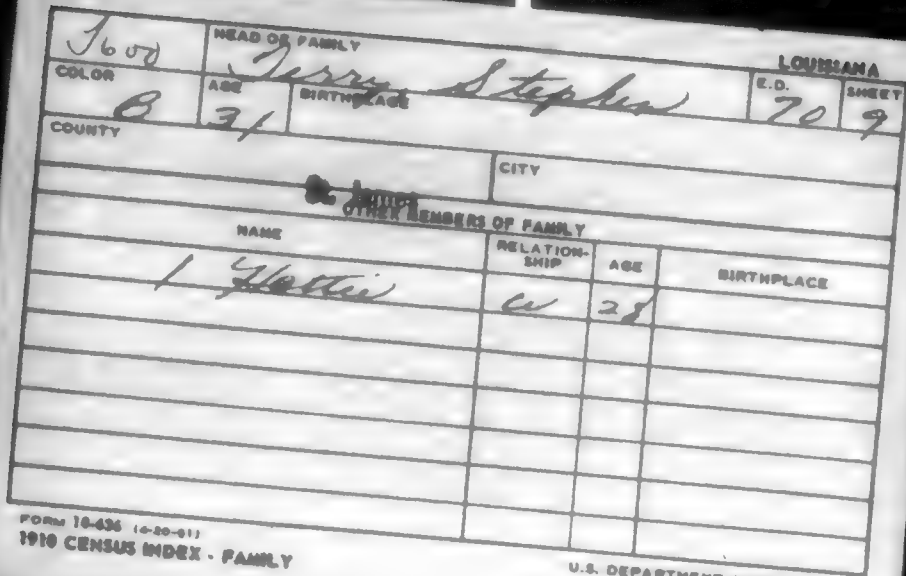 T600 HEAD OF FAMILY LOUISIANA
Terry, Stephen E.D. SHEET
COLOR AGE BIRTHPLACE 70 9
B 31
COUNTY CITY
St. James
OTHER MEMBERS OF FAMILY
NAME RELATION-SHIP AGE BIRTHPLACE
1 Hattie W 28
FORM 10-636 (4-20-61)
1910 CENSUS INDEX - FAMILY
U.S. DEPARTMENT